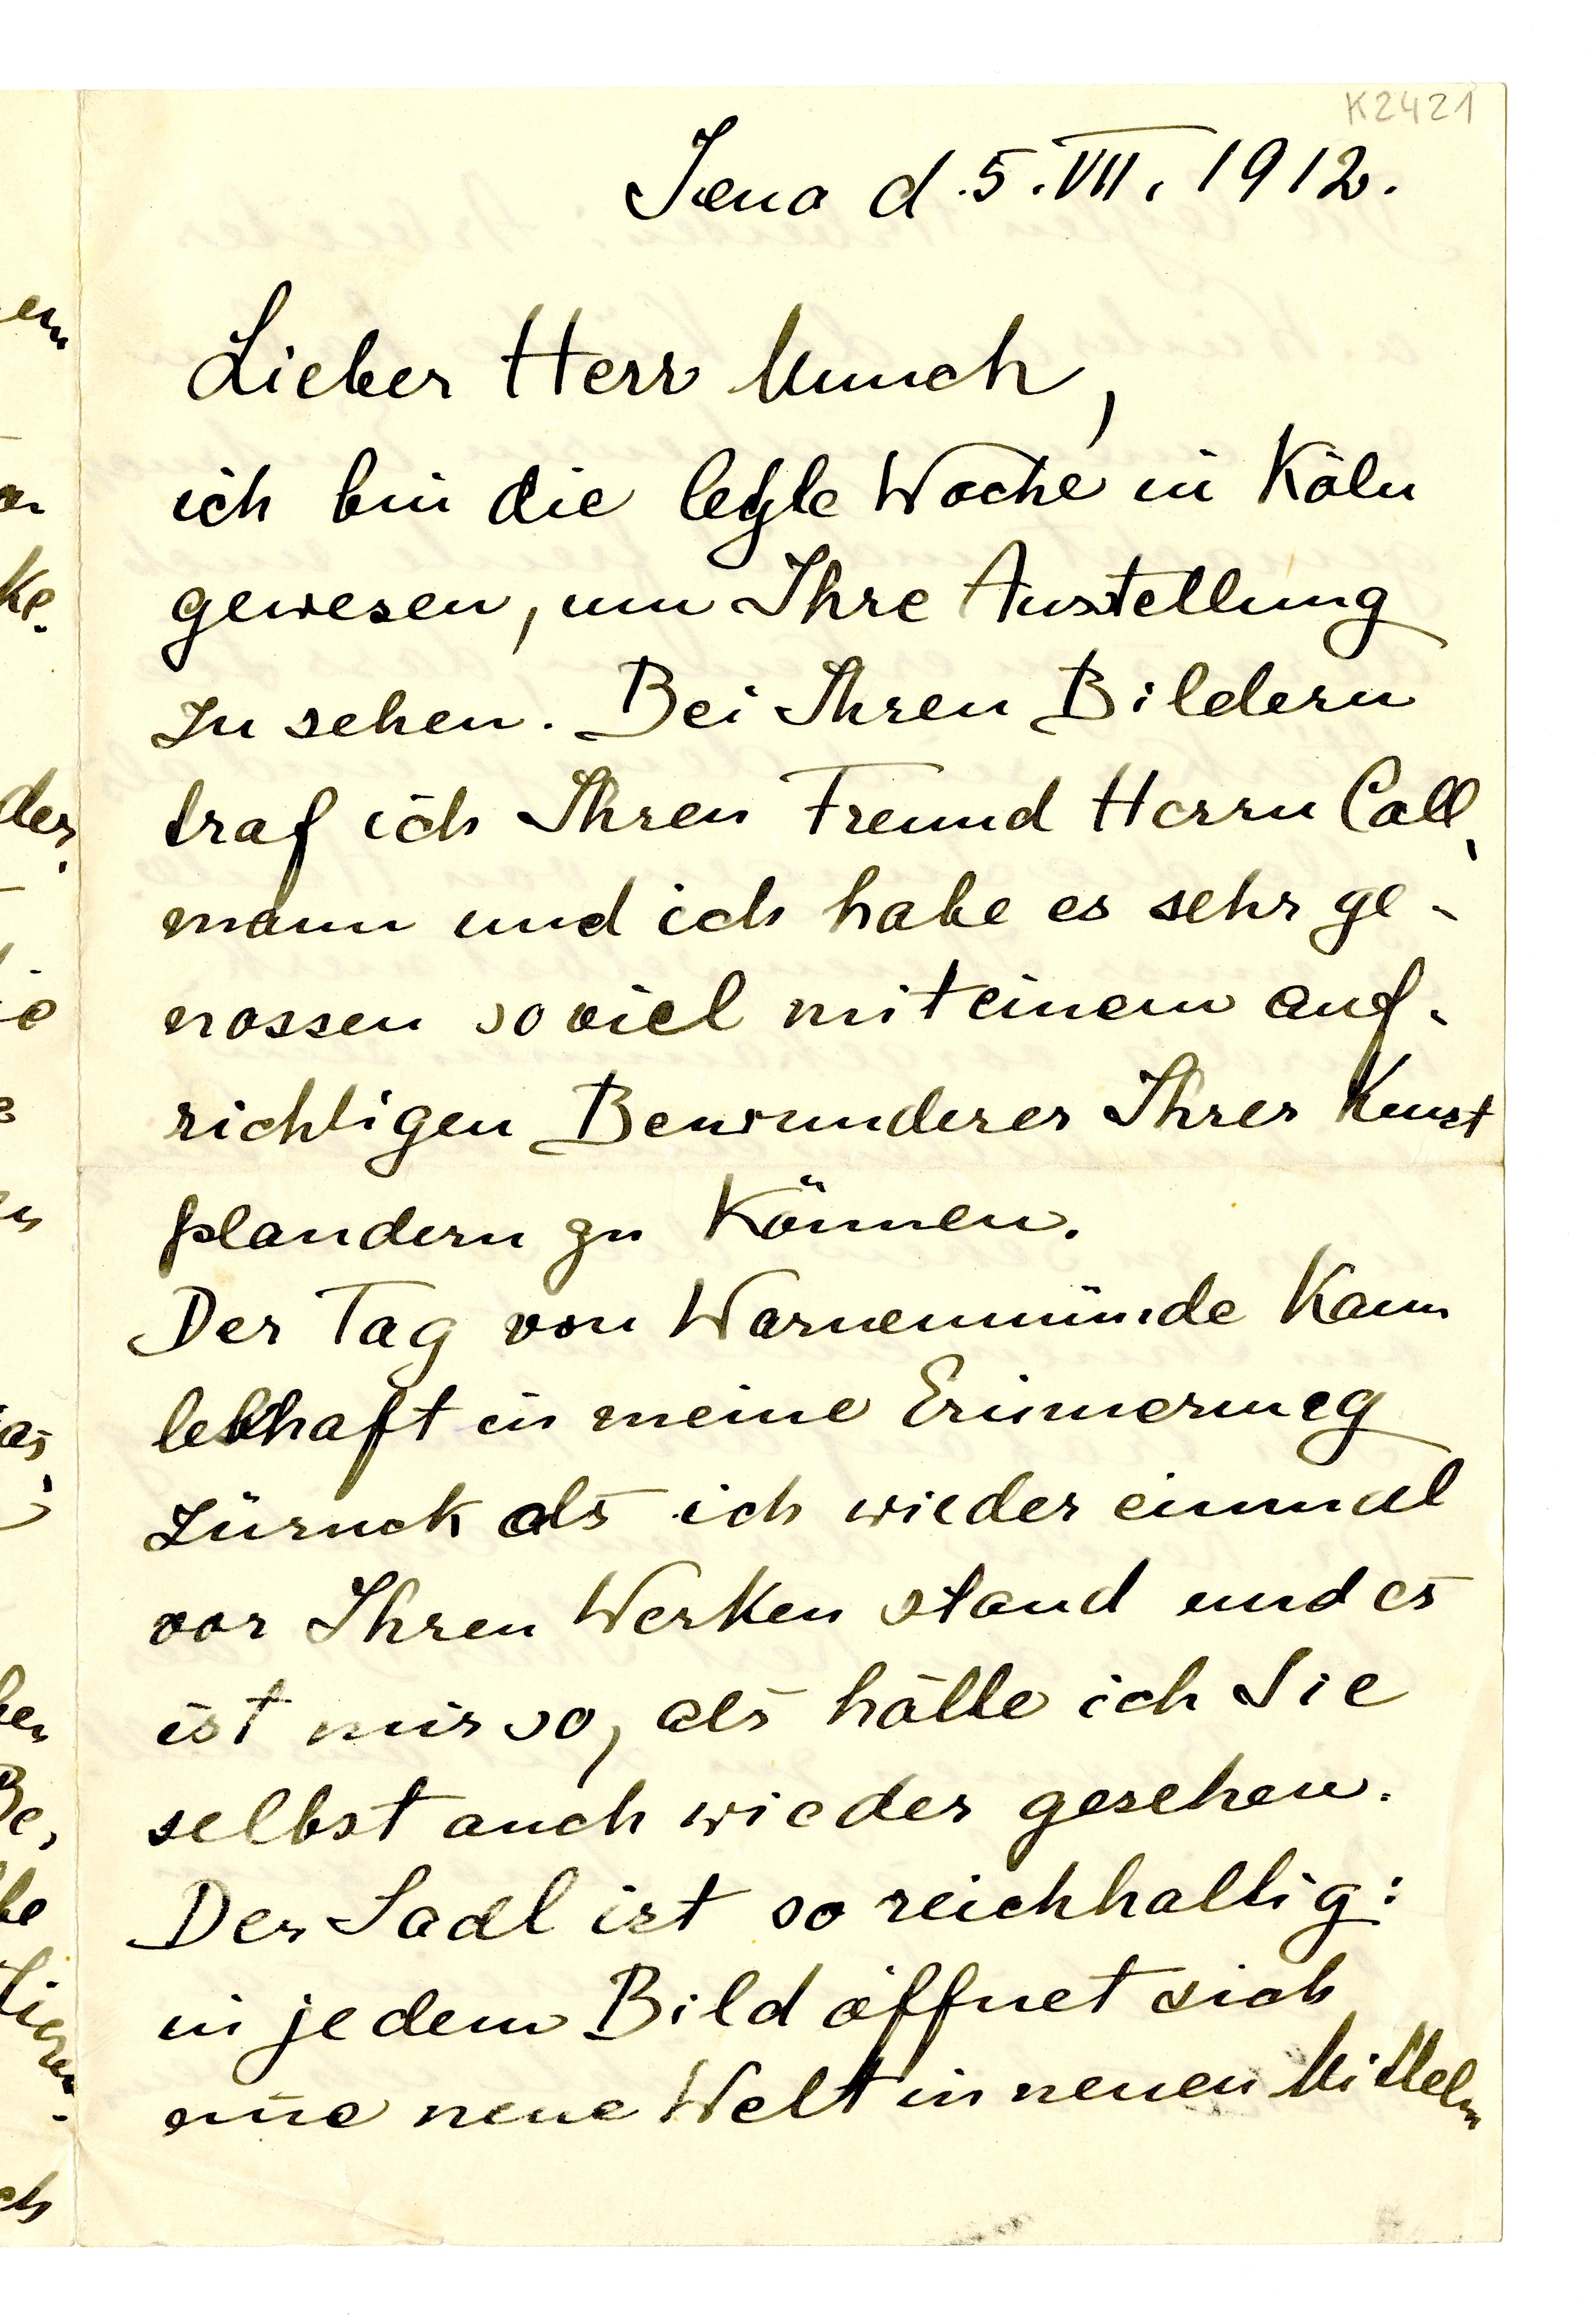 K2421
Jena d. 5. VII. 1912.
Lieber Herr Munch,
ich bin die letzte Woche in Köln
gewesen, um Ihre Austellung
zu sehen. Bei Ihren Bildern
traf ich Ihren Freund Herrn Coll-
mann und ich habe es sehr ge-
nossen so viel mit einem auf-
richtigen Bewunderer Ihrer Kunst
plaudern zu können.
Der Tag von Warnemünde kam
lebhaft in meine Erinnerung
zürück als ich wieder einmal
vor Ihren Werken stand und es
ist mir so, als hätte ich Sie
selbst auch wieder gesehen.
Der Saal ist so reichhaltig:
in jedem Bild öffnet sich
eine neue Welt in neuen Mitteln